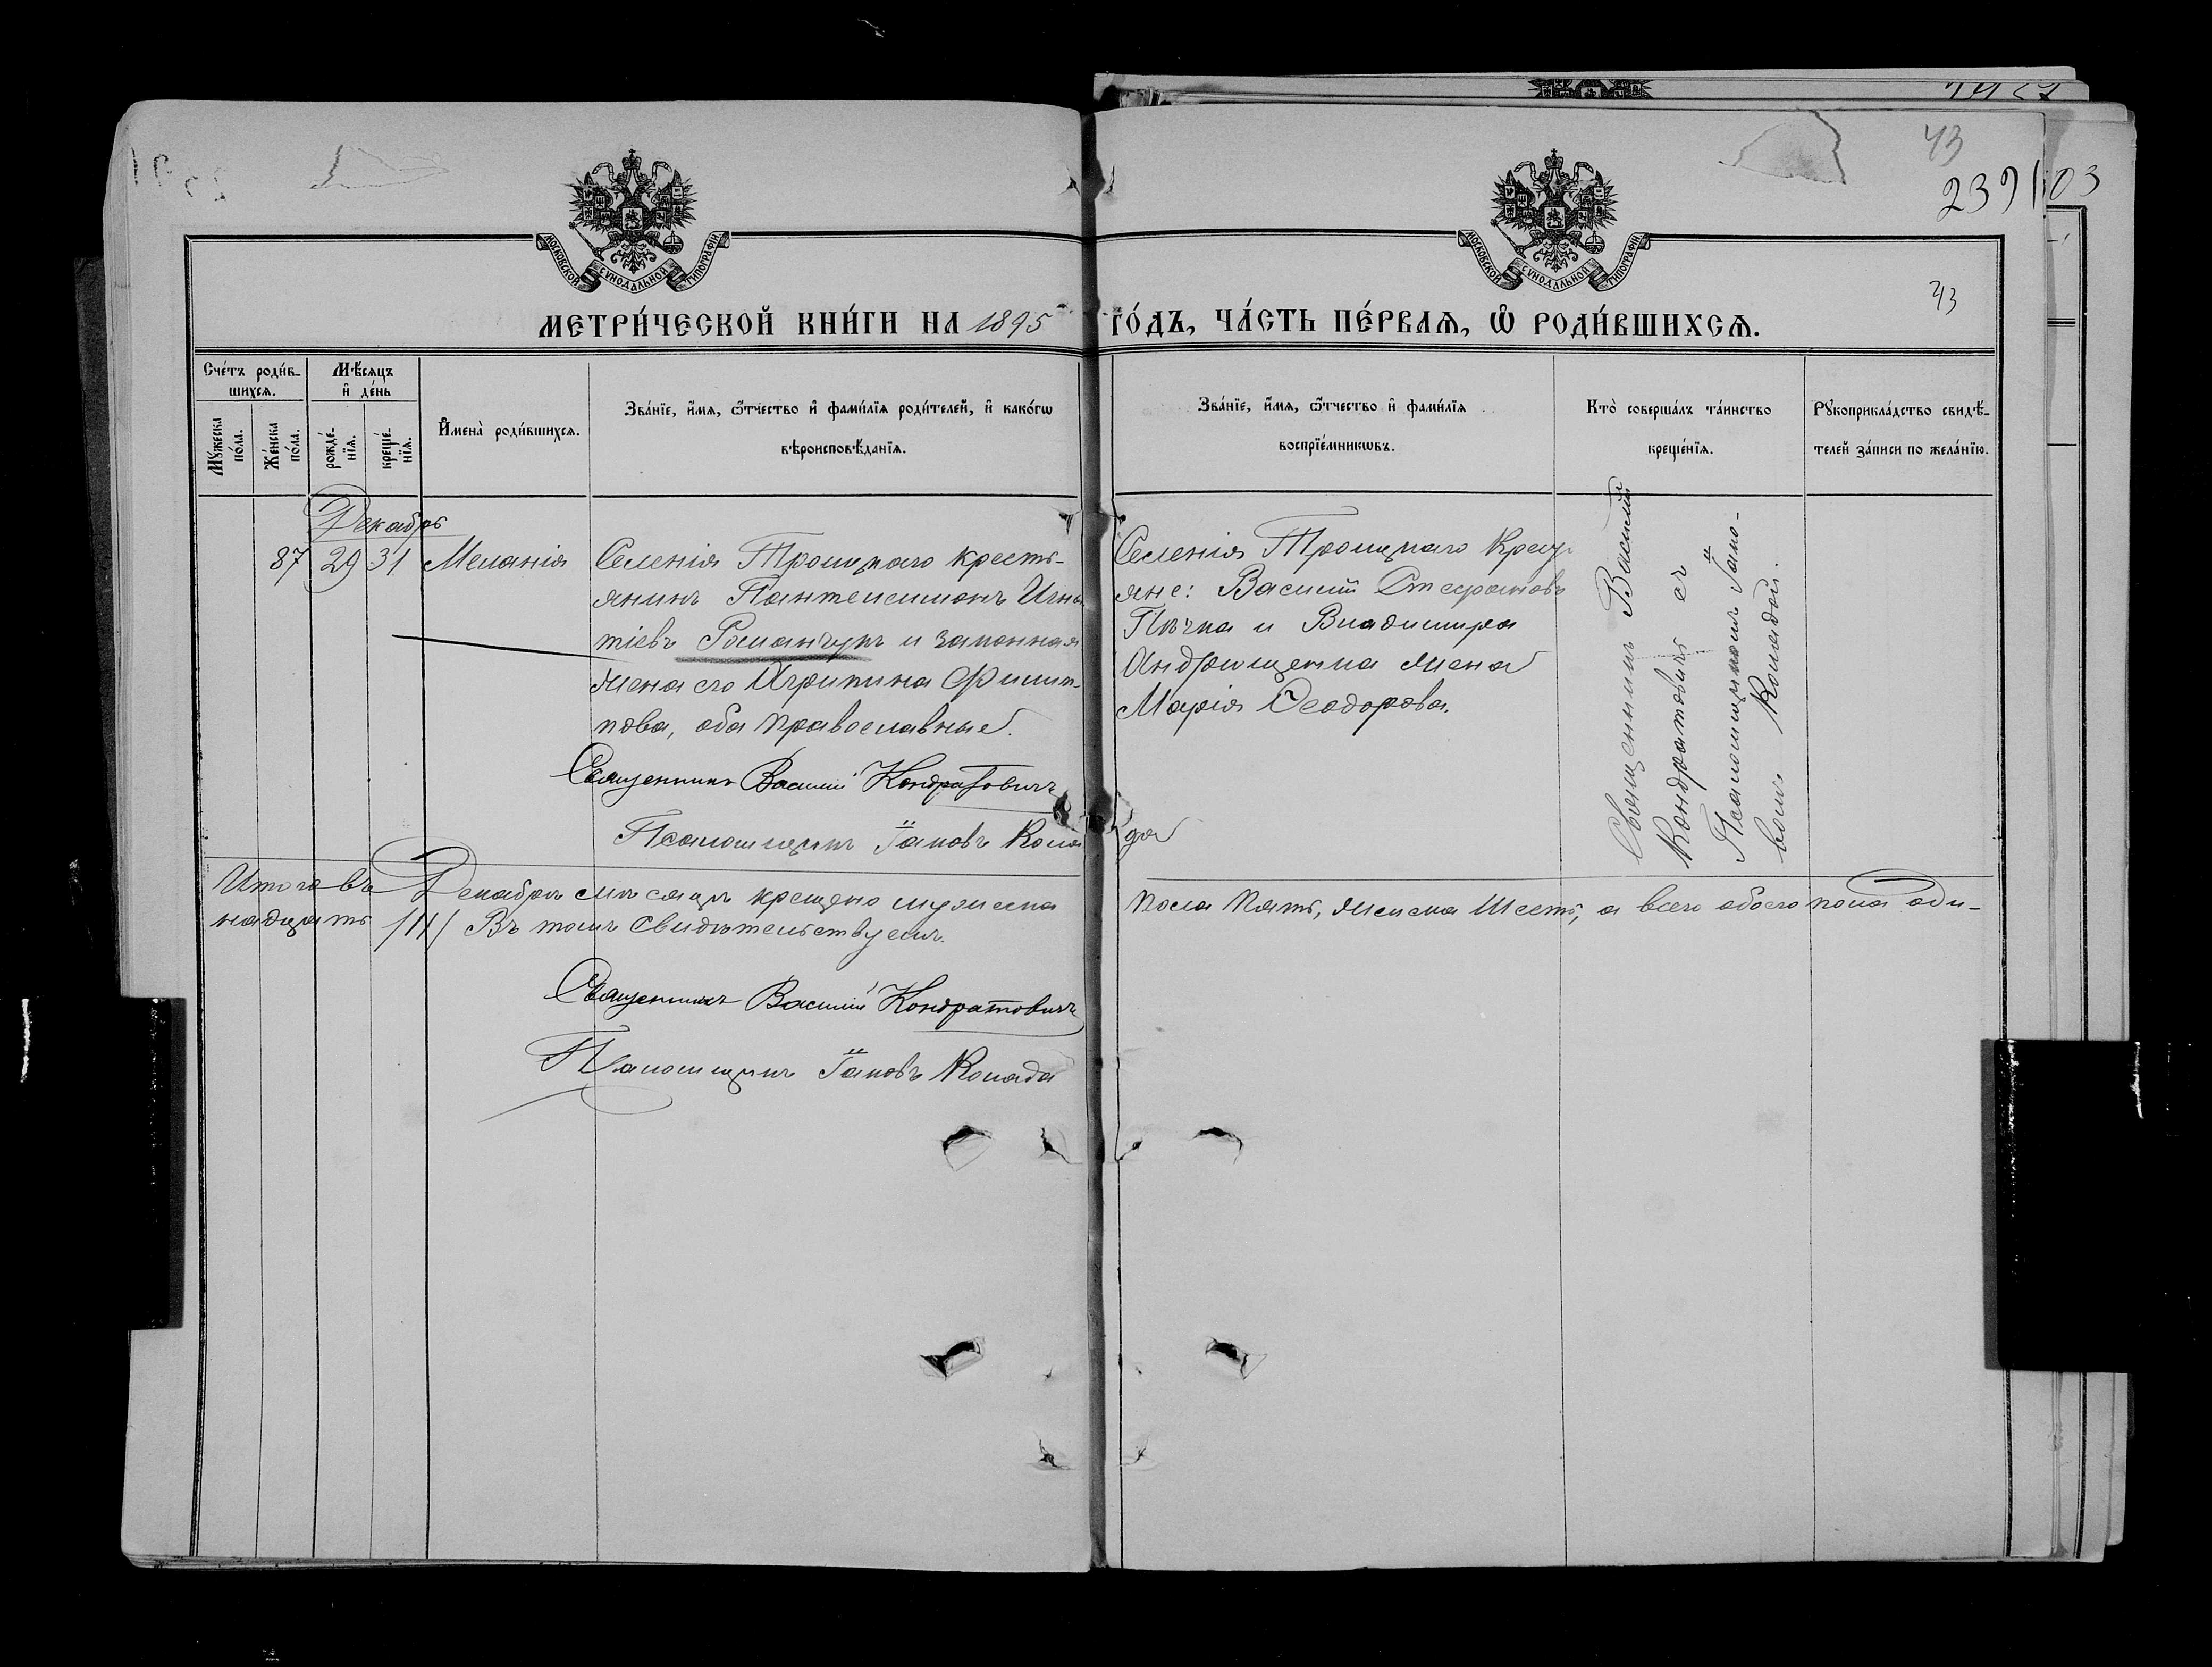 43
239
103
МОСКОВСКОЙ СѴНОДАЛЬНОЙ ТИПОГРАФІИ
МОСКОВСКОЙ СѴНОДАЛЬНОЙ ТИПОГРАФІИ
43
МЕТРИ́ЧЕСКОЙ КНИ́ГИ НА 1895 ГО́ДЪ, ЧА́СТЬ ПЕ́РВАЯ, Ѽ РОДИ́ВШИХСЯ.
Сче́тъ роди́в-
шихся.
Мѣ́сяцъ
и҆ де́нь
Мꙋ́жеска
по́ла.
Же́нска
по́ла.
рожде́-
нїя.
креще́-
нїя.
И҆мена̀ роди́вшихся.
Зва́нїе, и҆́мя, ѿтчество и҆ фами́лїя роди́телей, и҆ како́гѡ
вѣроисповѣ́данїя.
Зва́нїе, и҆́мя, ѿтчество и҆ фами́лїя
воспрїе́мникѡвъ.
Кто̀ соверша́лъ та́инство
креще́нїя.
Рꙋкоприкла́дство свидѣ́-
телей за́писи по жела́нїю.
Декабрь
87 29 31 Меланія
Селенія Троицкаго кресть-
янинъ Пантелеимонъ Игна
тіевъ Романчукъ и законная
жена его Агрипина Филип-
пова, оба православные.
Священникъ Василій Кондратовичъ
Псаломщикъ Іаковъ Колода
Селенія Троицкаго Крест
яне: Василій Стефановъ
Пѣчка и Владимира
Андрющенка жена
Марія Ѳеодорова.
Священникъ Василій
Кондратовичъ съ
Псаломщикомъ Іако-
вомъ Коладой.
Итого въ Декабрѣ мѣсяцѣ крещено мужеска пола пять, женска шесть, а всего обоего пола оди-
надцать /11/ Въ томъ свидѣтельствуемъ.
Священникъ Василій Кондратовичъ
Псаломщикъ Іаковъ Колада